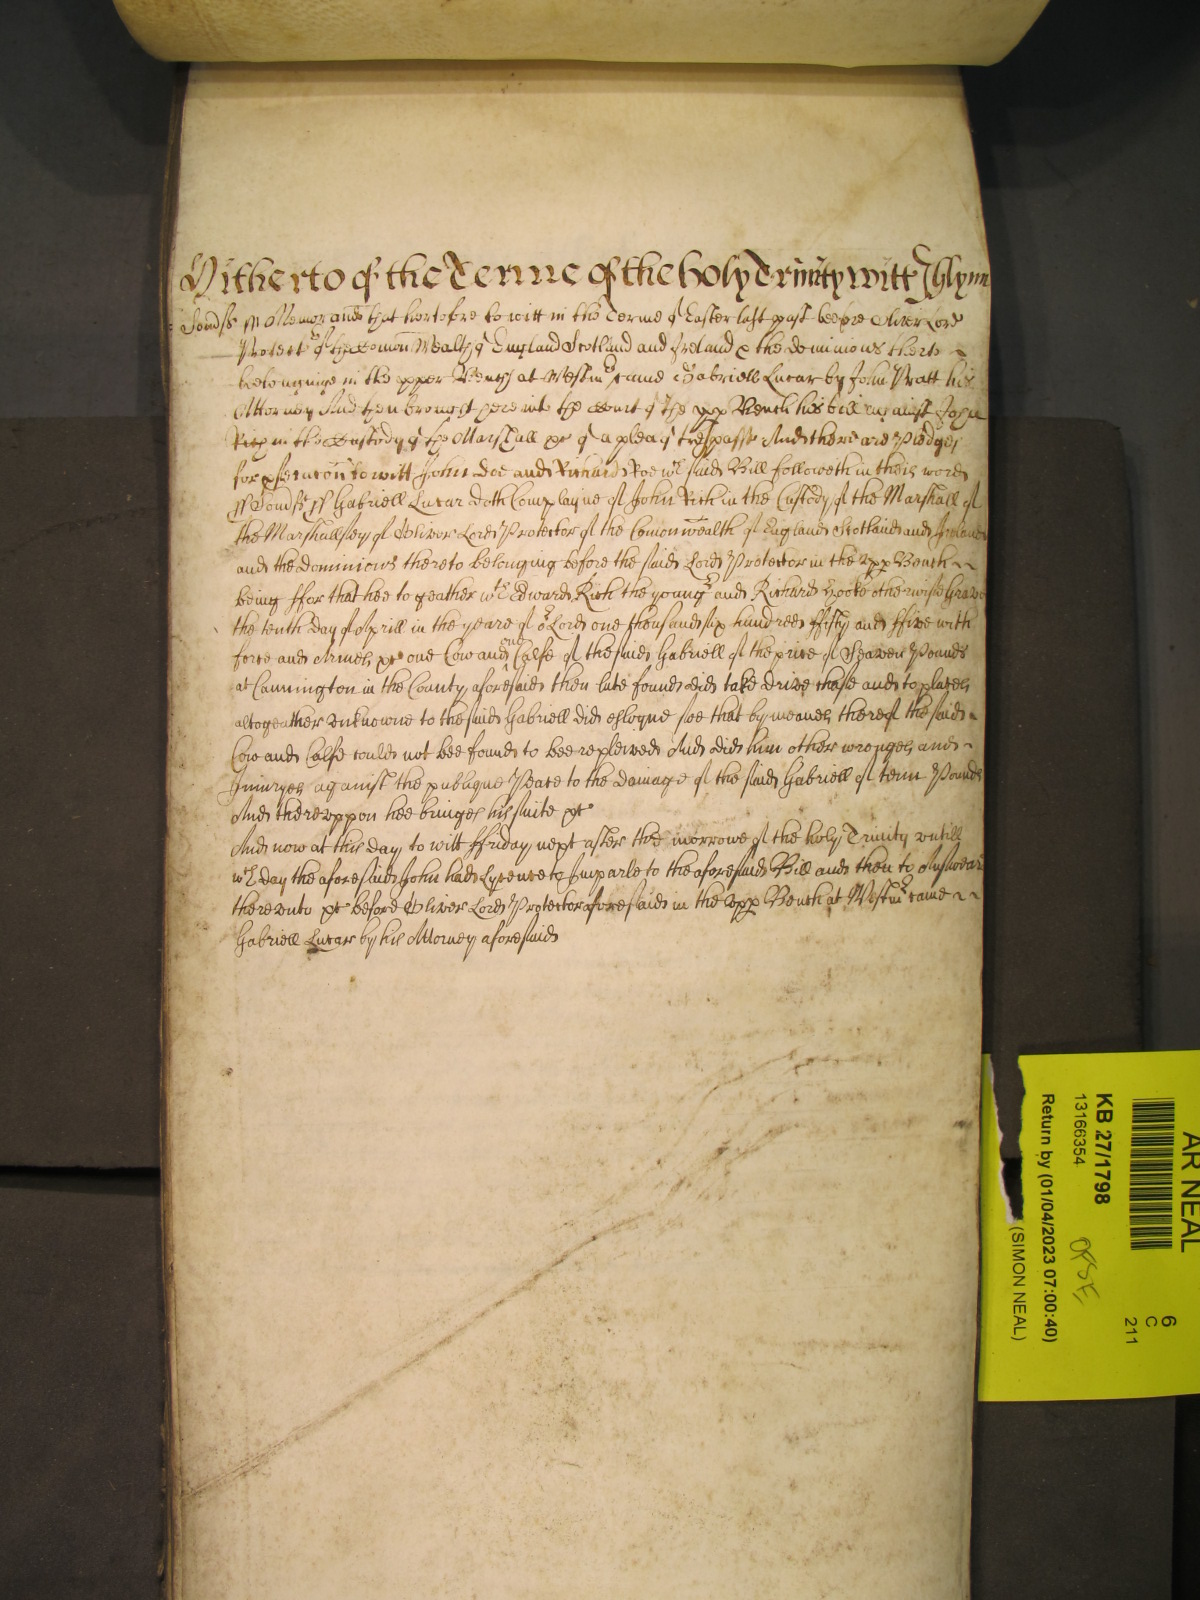 Hitherto of the Terme of the holy Trinity witt Glynn
Somss ss Memorand that heretofore to witt in the Terme of Easter last past before Oliver Lord
Protector of the Comon Wealth of England Scotland and Ireland & the dominions thereto
belonginge in the upper Bench at Westm came Gabriell Lucar by John Pratt his
Attorney And then brought here into the Court of the upp Bench his bill against John
Rich in the Custody of the Marshall &c of a plea of trespasse And there are Pledges
for psecucon to witt John Doe and Richard Roe wch said Bill followeth in theis words
ss Somss ss Gabriell Lucar doth Complayne of John Rich in the Custody of the Marshall of
the Marshallsey of Oliver Lord Protector of the Comonwealth of England Scotland and Ireland
and the dominions thereto belonging before the said Lord Protector in the upp Bench
being ffor that hee to geather wth Edward Rich the youngr and Richard Hooke otherwise
the tenth day of Aprill in the yeare of or Lord one thousand six hundred ffifty and ffive with
force and Armes &c one Cow and one Calfe of the said Gabriell of the price of Seaven Pounds
at Cannington in the County aforesaid then late found did take drive chase and to places
altogeather unknowne to the said Gabriell did esloyne soe that by meanes thereof the said
Cow and Calfe could not bee found to bee replevied And did him other wronges and
Iniuryes against the publique Peace to the damage of the said Gabriell of tenn Pounds
And thereuppon hee bringes his suite &c
And now at this day to witt ffriday next after the morrowe of the holy Trinity untill
wch day the aforesaid John had Lycence to Imparle to the aforesaid Bill and then to Answear
thereunto &c before Oliver Lord Protector aforesaid in the upp Bench at Westmr came
Gabriell Lucar by his Attorney aforesaid
AR NEAL
6
C
211
KB 27/1798
13166354
Return by (01/04/2023 07:00:40)
(SIMON NEAL)